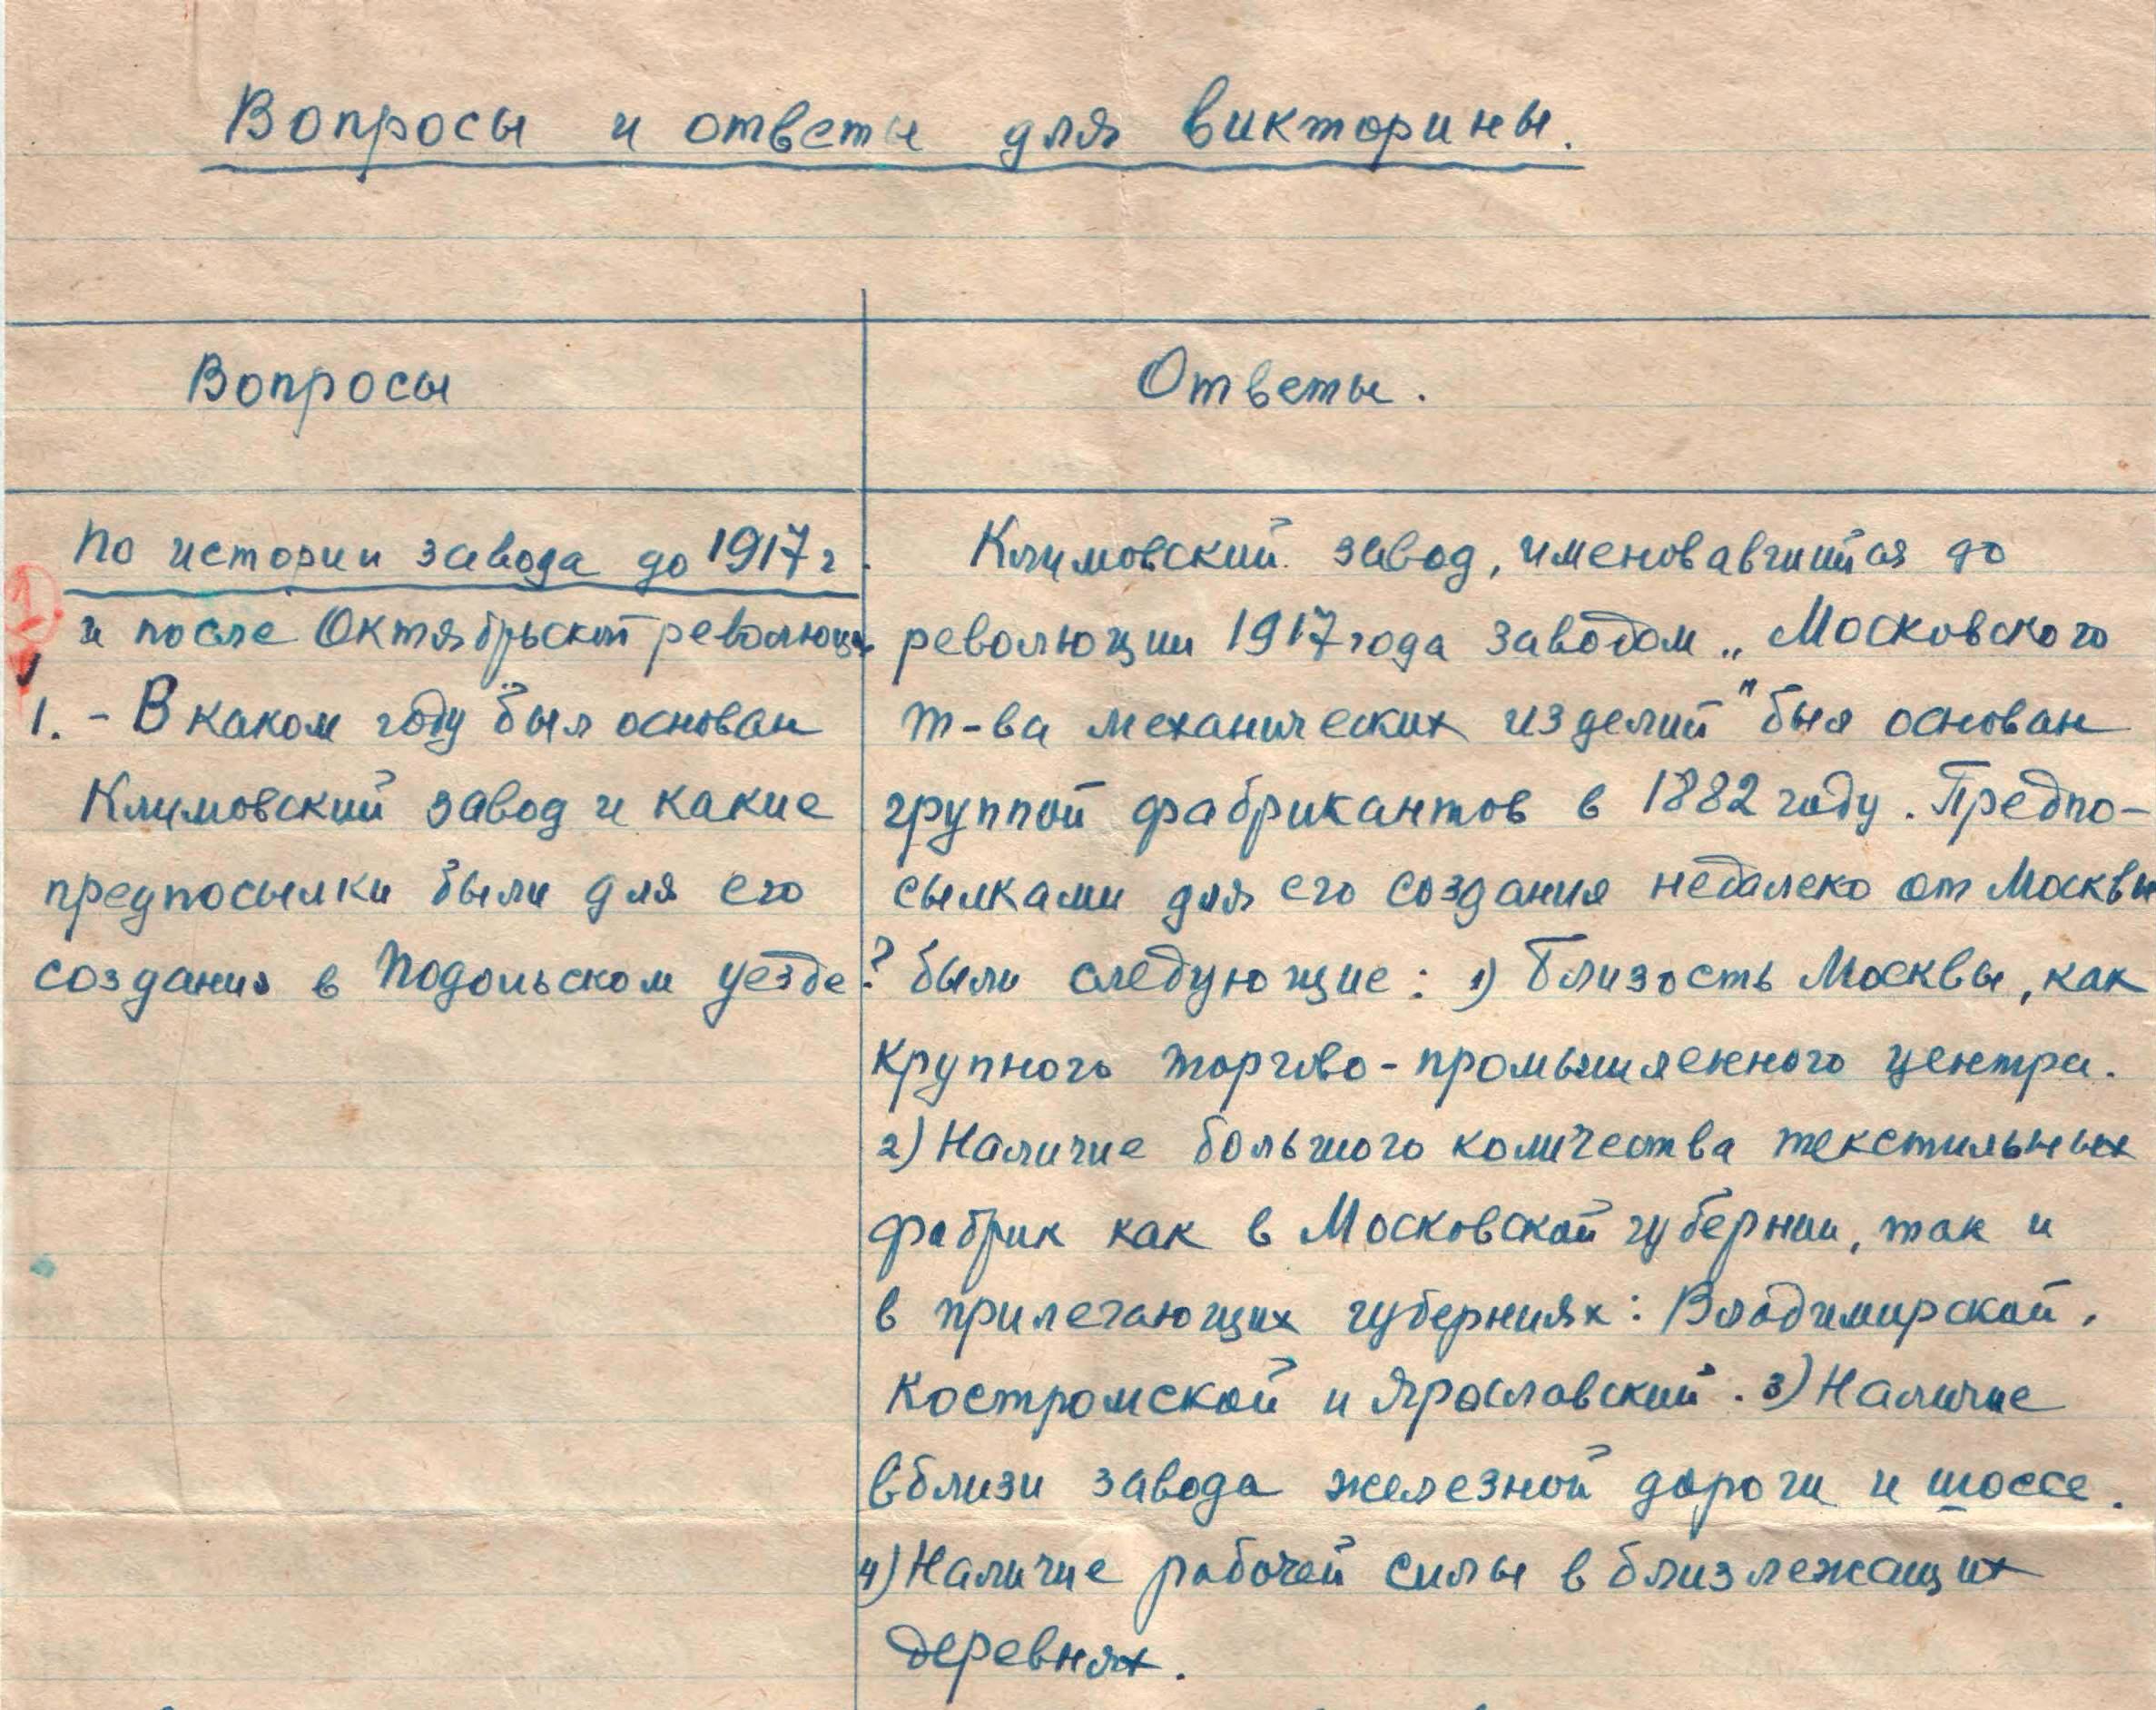 Вопросы и ответы для викторины.
Вопросы
Ответы.
По истории завода до 1917 г.
и после Октябрьской революции
1. - В каком году был основан
Климовский завод и какие
предпосылки были для его
создания в Подольском уезде?
Климовский завод, именовавшийся до
революции 1917 года заводом „Московского
т-ва механических изделий" был основан
группой фабрикантов в 1882 году. Предпо-
сылками для его создания недалеко от Москвы
были следующие: 1) Близость Москвы, как
крупного торгово-промышленного центра.
2) Наличие большого количества текстильных
фабрик как в Московской губернии, так и
в прилегающих губерниях: Владимирской,
Костромской и Ярославский. 3) Наличие
вблизи завода железной дороги и шоссе.
4) Наличие рабочей силы в близлежащих
деревнях.